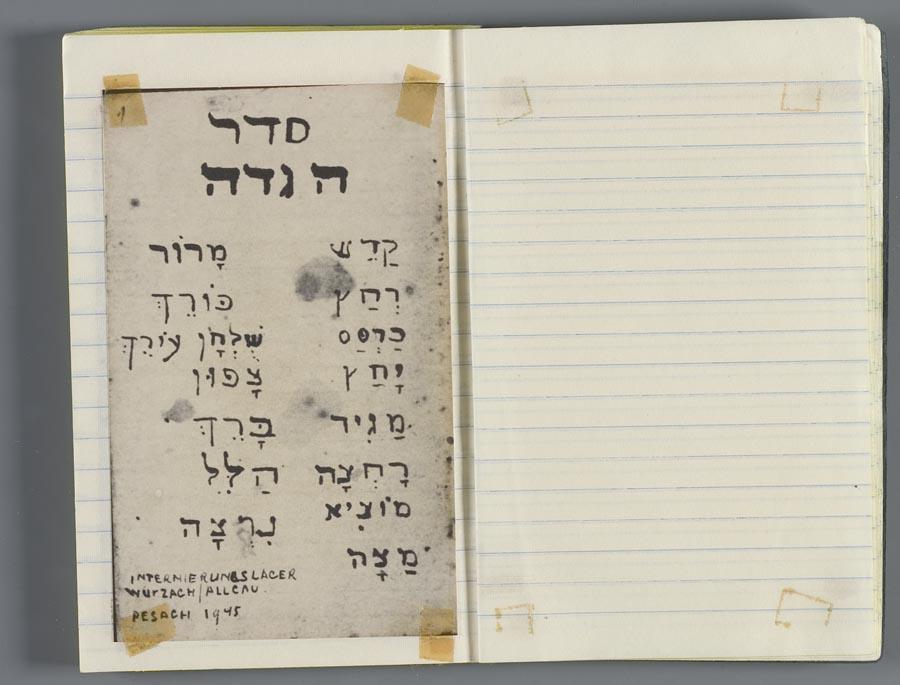 סדר
הגדה
קַדֵשׁ
רְחַץ
כַּרְפַּס
יָחַץ
מַגִיד
רָחְצָה
מוֹצִיא
מַצָה
מָרוֹר
כּוֹרֵךְ
שֻׁלְחָן עוֹרֵךְ
צָפוּן
בָּרֵךְ
הַלֵל
נִרְצָה
INTERNIERUNGSLAGER
WURZACH/ALLGAU.
PESACH 1945